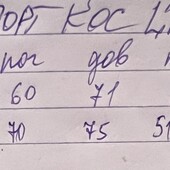 ПОРТ КОС
пог дов
60 71
70 75 51